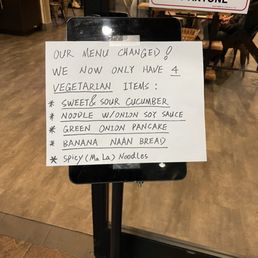 OUR MENU CHANGED!
WE NOW ONLY HAVE 4
VEGETARIAN ITEMS:
* SWEET & SOUR CUCUMBER
* NOODLE W/ONION SOY SAUCE
* GREEN ONION PANCAKE
* BANANA NAAN BREAD
* SPICY (Ma La) Noodles